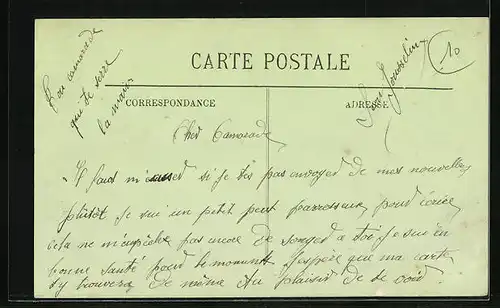 Ton camarade
qui te serre
la main
Jousselin
10
CARTE POSTALE
CORRESPONDANCE
ADRESSE
Cher Camarade,
Il faut m'excuser si je t'ès pas envoyer de mes nouvelles
plutôt je sui un petit peut parresseux, pour écrire,
cela ne m'empêche pas de songer a toi, je sui en
bonne santé pour le moment j'espère que ma carte
t'y trouvera de même Au plaisir de te voir.